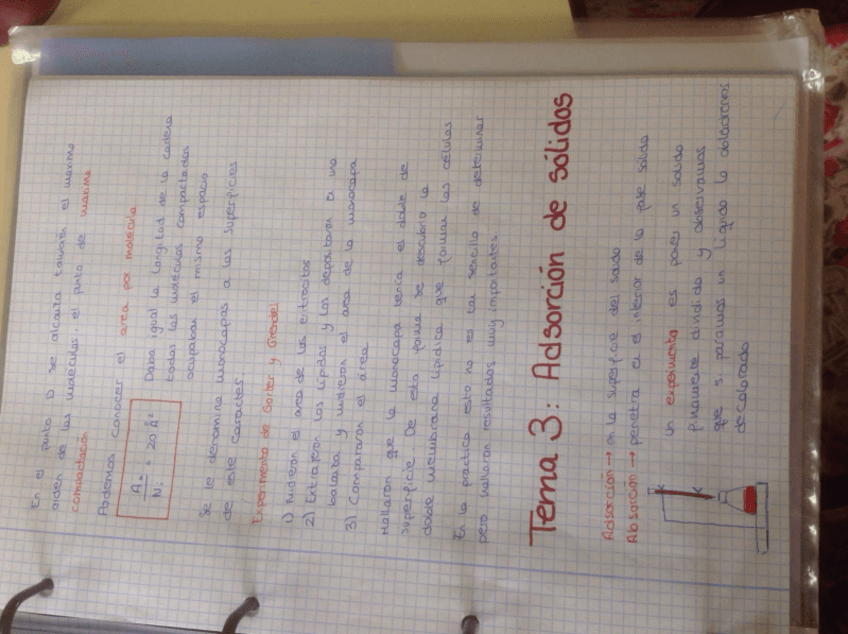 En el punto D se alcanza también el máximo
orden de las moléculas, el punto de máxima
compactación
Podemos conocer el area por molécula
A∞ / Ni = 20 Å² Daba igual la longitud de la cadena
todas las moléculas compactadas
ocupaban el mismo espacio
Se le denomina monocapas a las superficies
de este caracter
Experimento de Gorter y Grendel
1) Midieron el area de los eritrocitos
2) Extrajeron los lípidos y los depositaron a una
balanza y midieron el area de la monocapa
3) Compararon el área.
Hallaron que la monocapa tenía el doble de
superficie. De esta forma se descubrió la
doble membrana lipídica que forman las células
En la practica esto no es tan sencillo de determinar
pero hallaron resultados muy importantes.
Tema 3: Adsorción de sólidos
Adsorción → en la superficie del solido
Absorción → penetra en el interior de la fase solida
Un experimento es poner un solido
finamente dividido y observamos
que si pasamos un liquido lo obtendremos
decolorado